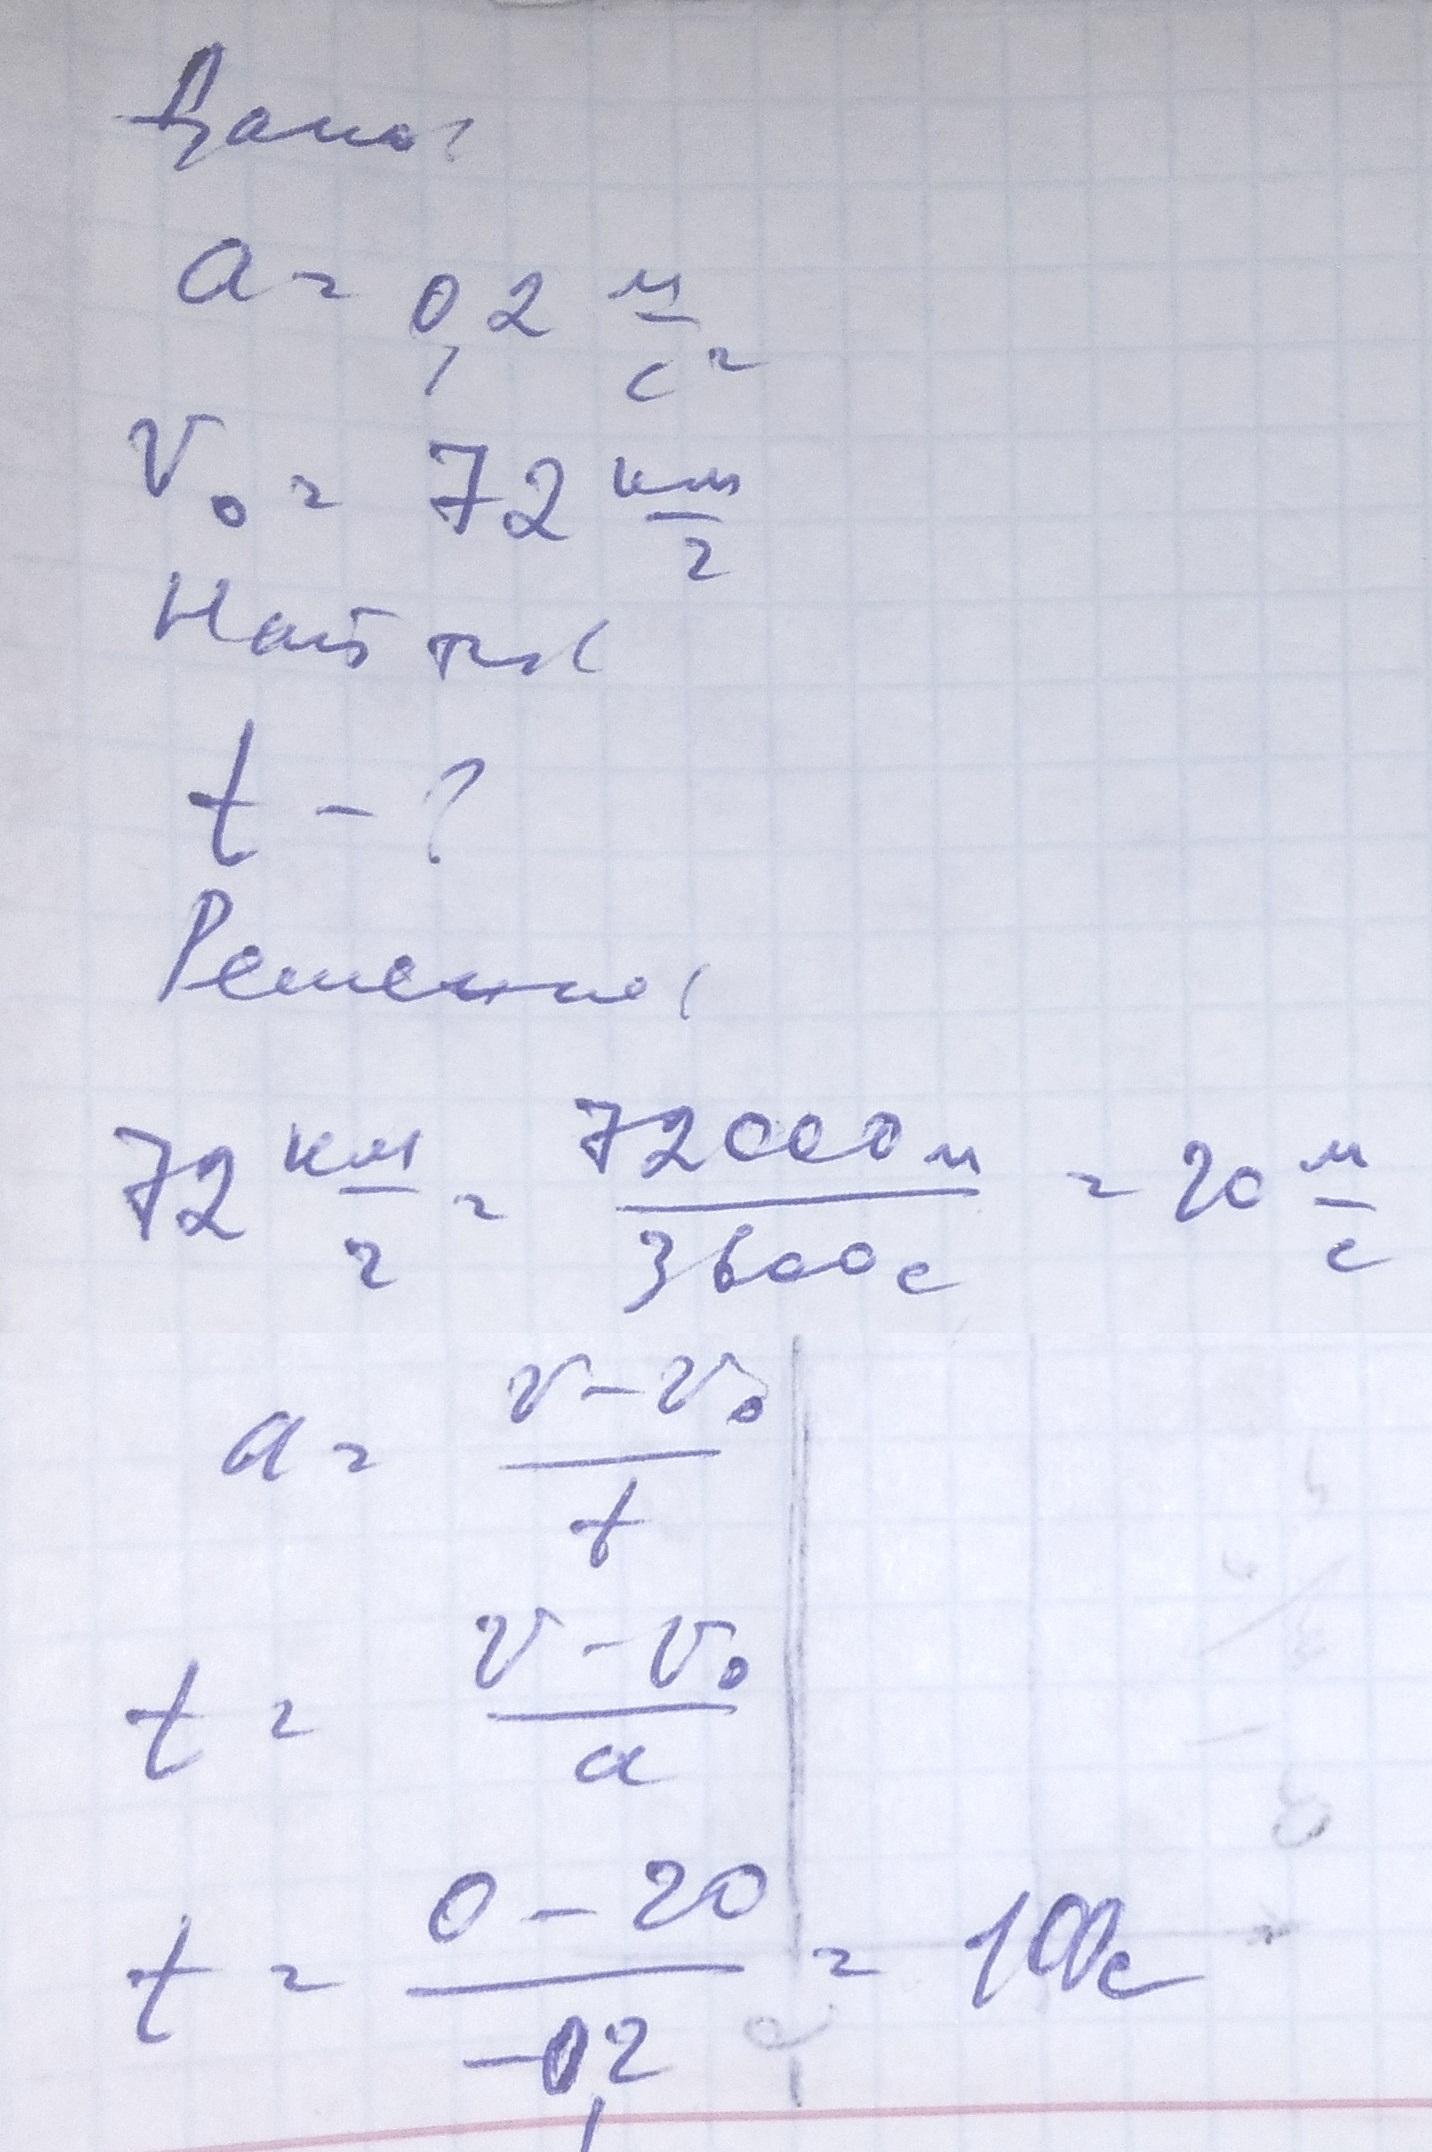 Дано:
a = 0,2 м/с²
v₀ = 72 км/ч
Найти:
t - ?
Решение:
72 км/ч = 72000м/3600с = 20 м/с
a = v-v₀/t
t = v-v₀/a
t = 0-20/-0,2 = 100с